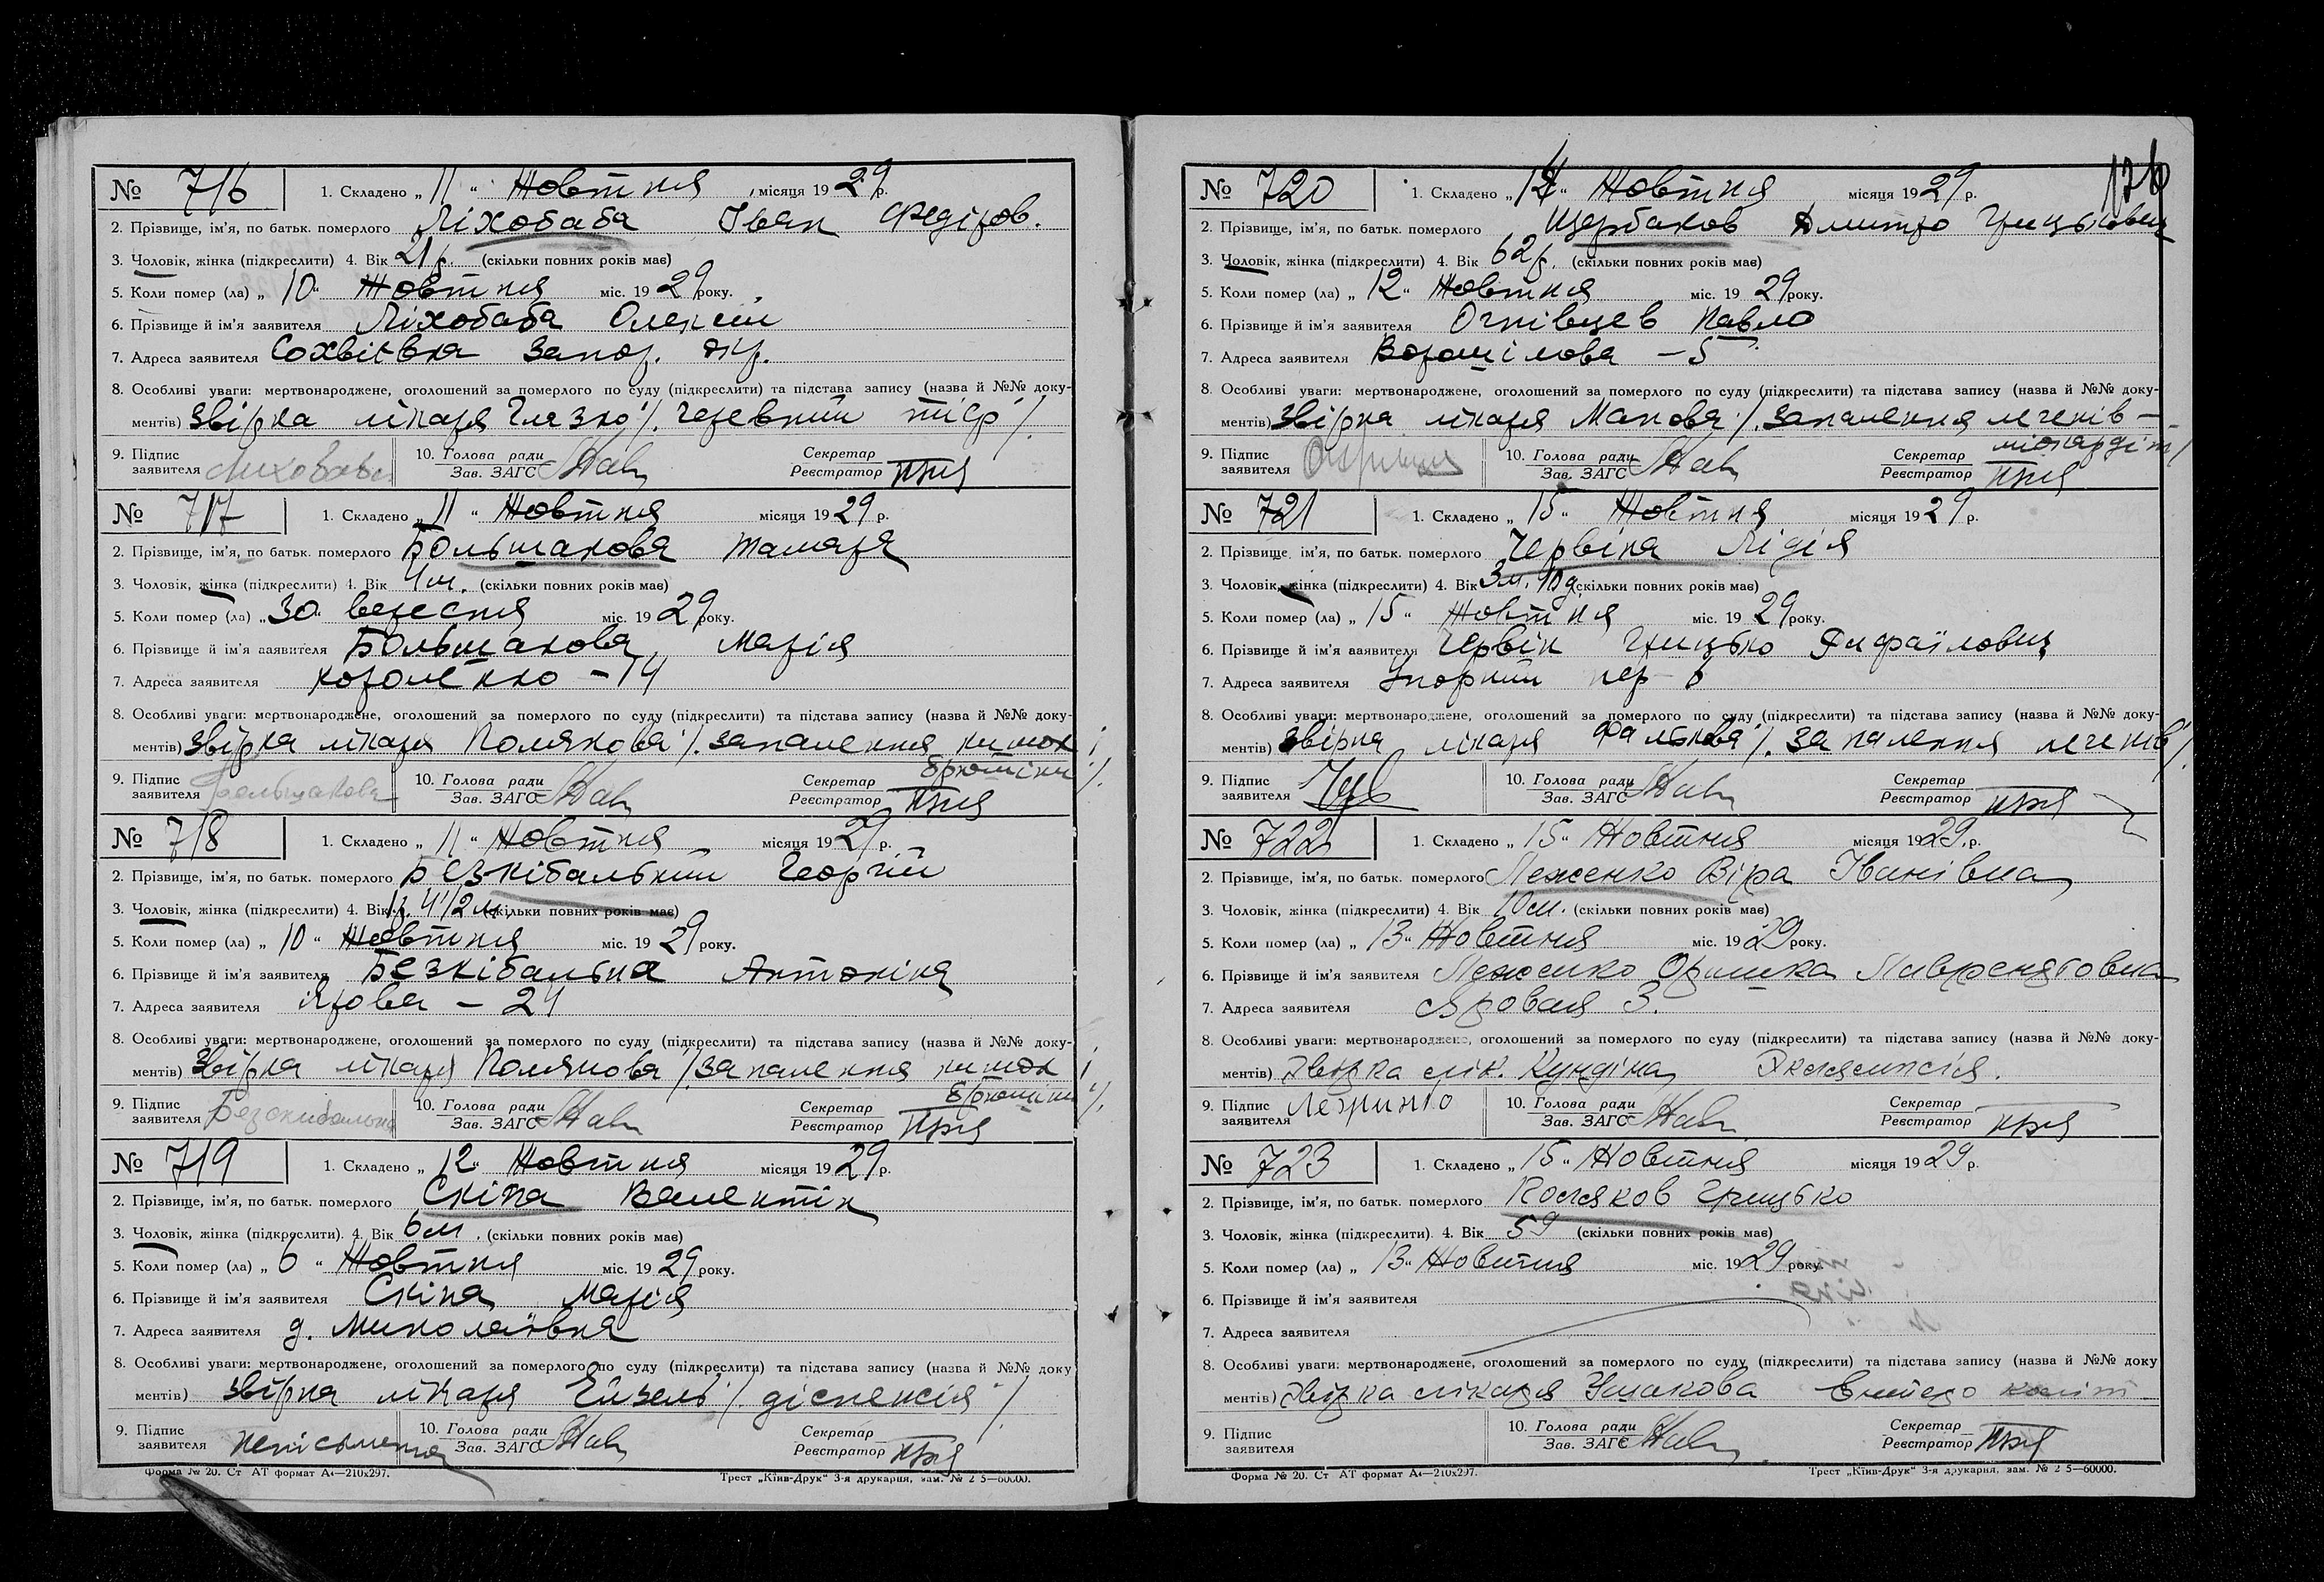 № 716 1. Складено „ 11 “ Жовтня місяця 1929 р.
2. Прізвище, ім’я, по батьк. померлого Ліхобаба Іван Федіров.
3. Чоловік, жінка (підкреслити) 4. Вік 21 р. (скільки повних років має)
5. Коли помер (ла) „ 10 “ Жовтня міс. 1929 року.
6. Прізвище й ім’я заявителя Ліхобаба Олексій
7. Адреса заявителя Сохвіївка Запор. окр.
8. Особливі уваги: мертвонароджене, оголошений за померлого по суду (підкреслити) та підстава запису (назва й №№ доку-
ментів) Звірка лікаря Глязко /. Черевний тіф /.
9. Підпис заявителя Лихобаба 10. Голова ради Зав. ЗАГС Секретар Реєстратор
№ 717 1. Складено „ 11 “ Жовтня місяця 1929 р.
2. Прізвище, ім’я, по батьк. померлого Большакова Тамара
3. Чоловік, жінка (підкреслити) 4. Вік 4 м. (скільки повних років має)
5. Коли помер (ла) „ 30 “ вересня міс. 1929 року.
6. Прізвище й ім’я заявителя Большакова Марія
7. Адреса заявителя Короленко - 14
8. Особливі уваги: мертвонароджене, оголошений за померлого по суду (підкреслити) та підстава запису (назва й №№ доку-
ментів) Звірка лікаря Полякова /. запалення кишок і
брюшіни /.
9. Підпис заявителя Большакова 10. Голова ради Зав. ЗАГС Секретар Реєстратор
№ 718 1. Складено „ 11 “ Жовтня місяця 1929 р.
2. Прізвище, ім’я, по батьк. померлого Безкібальний Георгій
3. Чоловік, жінка (підкреслити) 4. Вік 1 р. 4 1/2 м. (скільки повних років має)
5. Коли помер (ла) „ 10 “ Жовтня міс. 1929 року.
6. Прізвище й ім’я заявителя Безкібальна Антоніна
7. Адреса заявителя Ярова - 24
8. Особливі уваги: мертвонароджене, оголошений за померлого по суду (підкреслити) та підстава запису (назва й №№ доку-
ментів) Звірка лікаря Полякова /. запалення кишок і
брюшіни /.
9. Підпис заявителя 10. Голова ради Зав. ЗАГС Секретар Реєстратор
№ 719 1. Складено „ 12 “ Жовтня місяця 1929 р.
2. Прізвище, ім’я, по батьк. померлого Скіпа Валентін
3. Чоловік, жінка (підкреслити). 4. Вік 6 м. (скільки повних років має)
5. Коли помер (ла) „ 6 “ Жовтня міс. 1929 року.
6. Прізвище й ім’я заявителя Скіпа Марія
7. Адреса заявителя д. Миколаївка
8. Особливі уваги: мертвонароджене, оголошений за померлого по суду (підкреслити) та підстава запису (назва й №№ доку
ментів) Звірка лікаря Ейзель /. діспепсія /.
9. Підпис заявителя неписьменна 10. Голова ради Зав. ЗАГС Секретар Реєстратор
Форма № 20. Ст АТ формат А4—210х297. Трест „Київ-Друк“ 3-я друкарня, зам. № 2 5—60000.
№ 720 1. Складено „ 14 “ Жовтня місяця 1929 р.
2. Прізвище, ім’я, по батьк. померлого Щербаков Дмитро Грицькович
3. Чоловік, жінка (підкреслити) 4. Вік 62 р. (скільки повних років має)
5. Коли помер (ла) „ 12 “ Жовтня міс. 1929 року.
6. Прізвище й ім’я заявителя Огнівцев Павло
7. Адреса заявителя Ворошілова - 5
8. Особливі уваги: мертвонароджене, оголошений за померлого по суду (підкреслити) та підстава запису (назва й №№ доку-
ментів) Звірка лікаря Макова /. запалення легенів -
міокардіт /
9. Підпис заявителя 10. Голова ради Зав. ЗАГС Секретар Реєстратор
№ 721 1. Складено „ 15 “ Жовтня місяця 1929 р.
2. Прізвище, ім’я, по батьк. померлого Червіна Лідія
3. Чоловік, жінка (підкреслити) 4. Вік 3 м. 10 д. (скільки повних років має)
5. Коли помер (ла) „ 15 “ Жовтня міс. 1929 року.
6. Прізвище й ім’я заявителя Червін Грицько
7. Адреса заявителя Упорний пер - 6
8. Особливі уваги: мертвонароджене, оголошений за померлого по суду (підкреслити) та підстава запису (назва й №№ доку-
ментів) Звірка лікаря Фалькова /. запалення легенів /.
9. Підпис заявителя 10. Голова ради Зав. ЗАГС Секретар Реєстратор
№ 722 1. Складено „ 15 “ Жовтня місяця 1929 р.
2. Прізвище, ім’я, по батьк. померлого Леженко Віра Іванівна
3. Чоловік, жінка (підкреслити) 4. Вік 10 м. (скільки повних років має)
5. Коли помер (ла) „ 13 “ Жовтня міс. 1929 року.
6. Прізвище й ім’я заявителя Леженко Оришка
7. Адреса заявителя Яровая 3.
8. Особливі уваги: мертвонароджене, оголошений за померлого по суду (підкреслити) та підстава запису (назва й №№ доку-
ментів) Звірка лік. Кундіна Еклямпсія.
9. Підпис заявителя 10. Голова ради Зав. ЗАГС Секретар Реєстратор
№ 723 1. Складено „ 15 “ Жовтня місяця 1929 р.
2. Прізвище, ім’я, по батьк. померлого Поляков Грицько
3. Чоловік, жінка (підкреслити). 4. Вік 59 (скільки повних років має)
5. Коли помер (ла) „ 13 “ Жовтня міс. 1929 року.
6. Прізвище й ім’я заявителя
7. Адреса заявителя
8. Особливі уваги: мертвонароджене, оголошений за померлого по суду (підкреслити) та підстава запису (назва й №№ доку
ментів) Звірка лікаря Ушакова Ентеро коліт
9. Підпис заявителя 10. Голова ради Зав. ЗАГС Секретар Реєстратор
Форма № 20. Ст АТ формат А4—210х297. Трест „Київ-Друк“ 3-я друкарня, зам. № 2 5—60000.